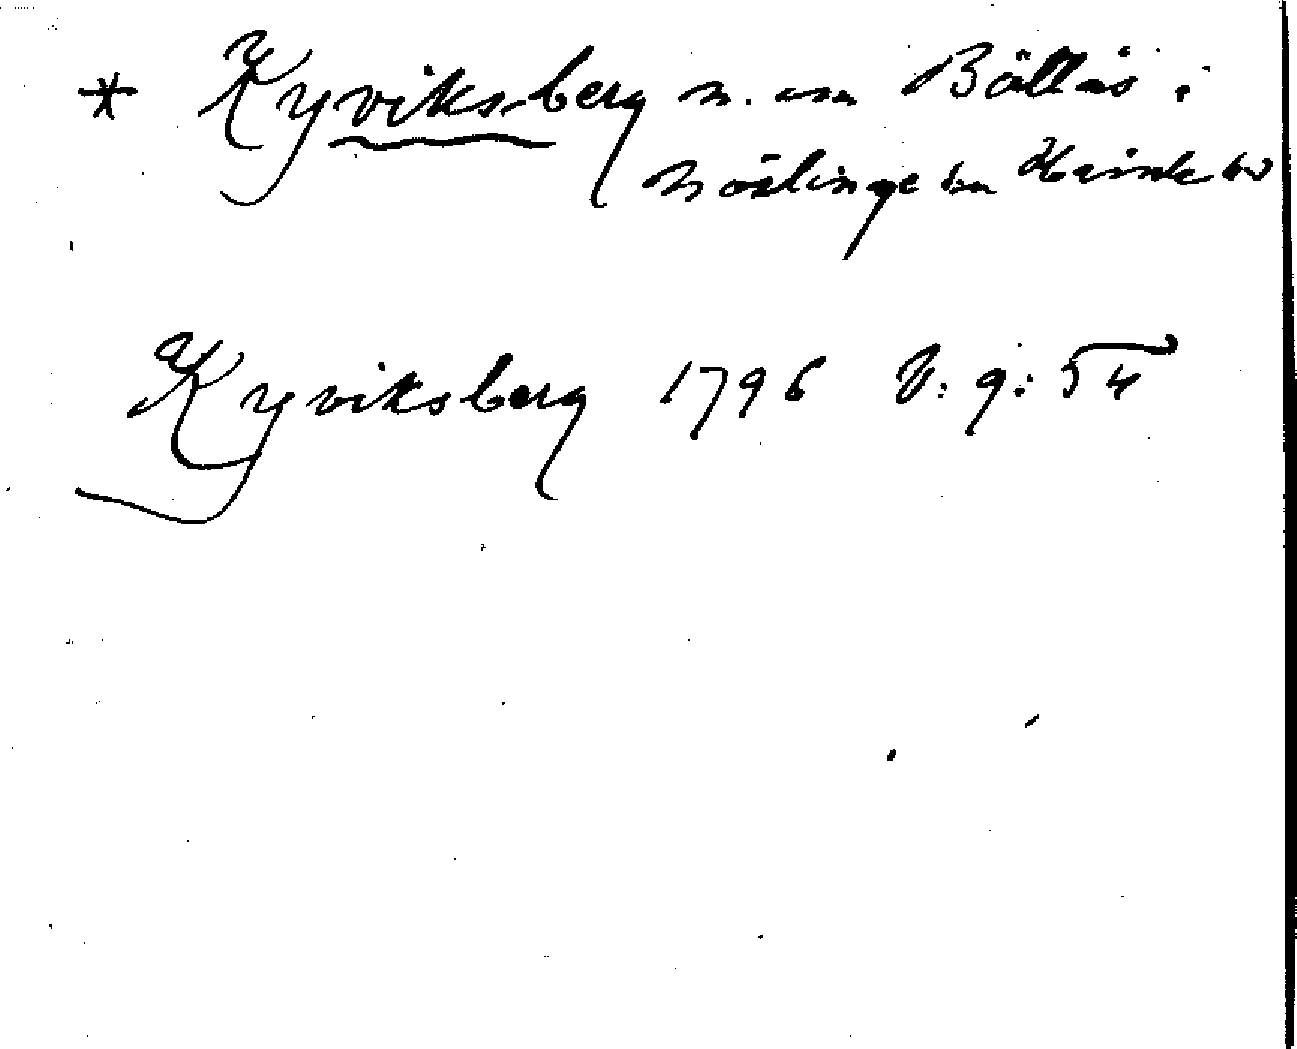 * Kyviksberg n. om Bällås i
Nöslinge sn Himle hd
Kyviksberg 1796 V: 9: 54